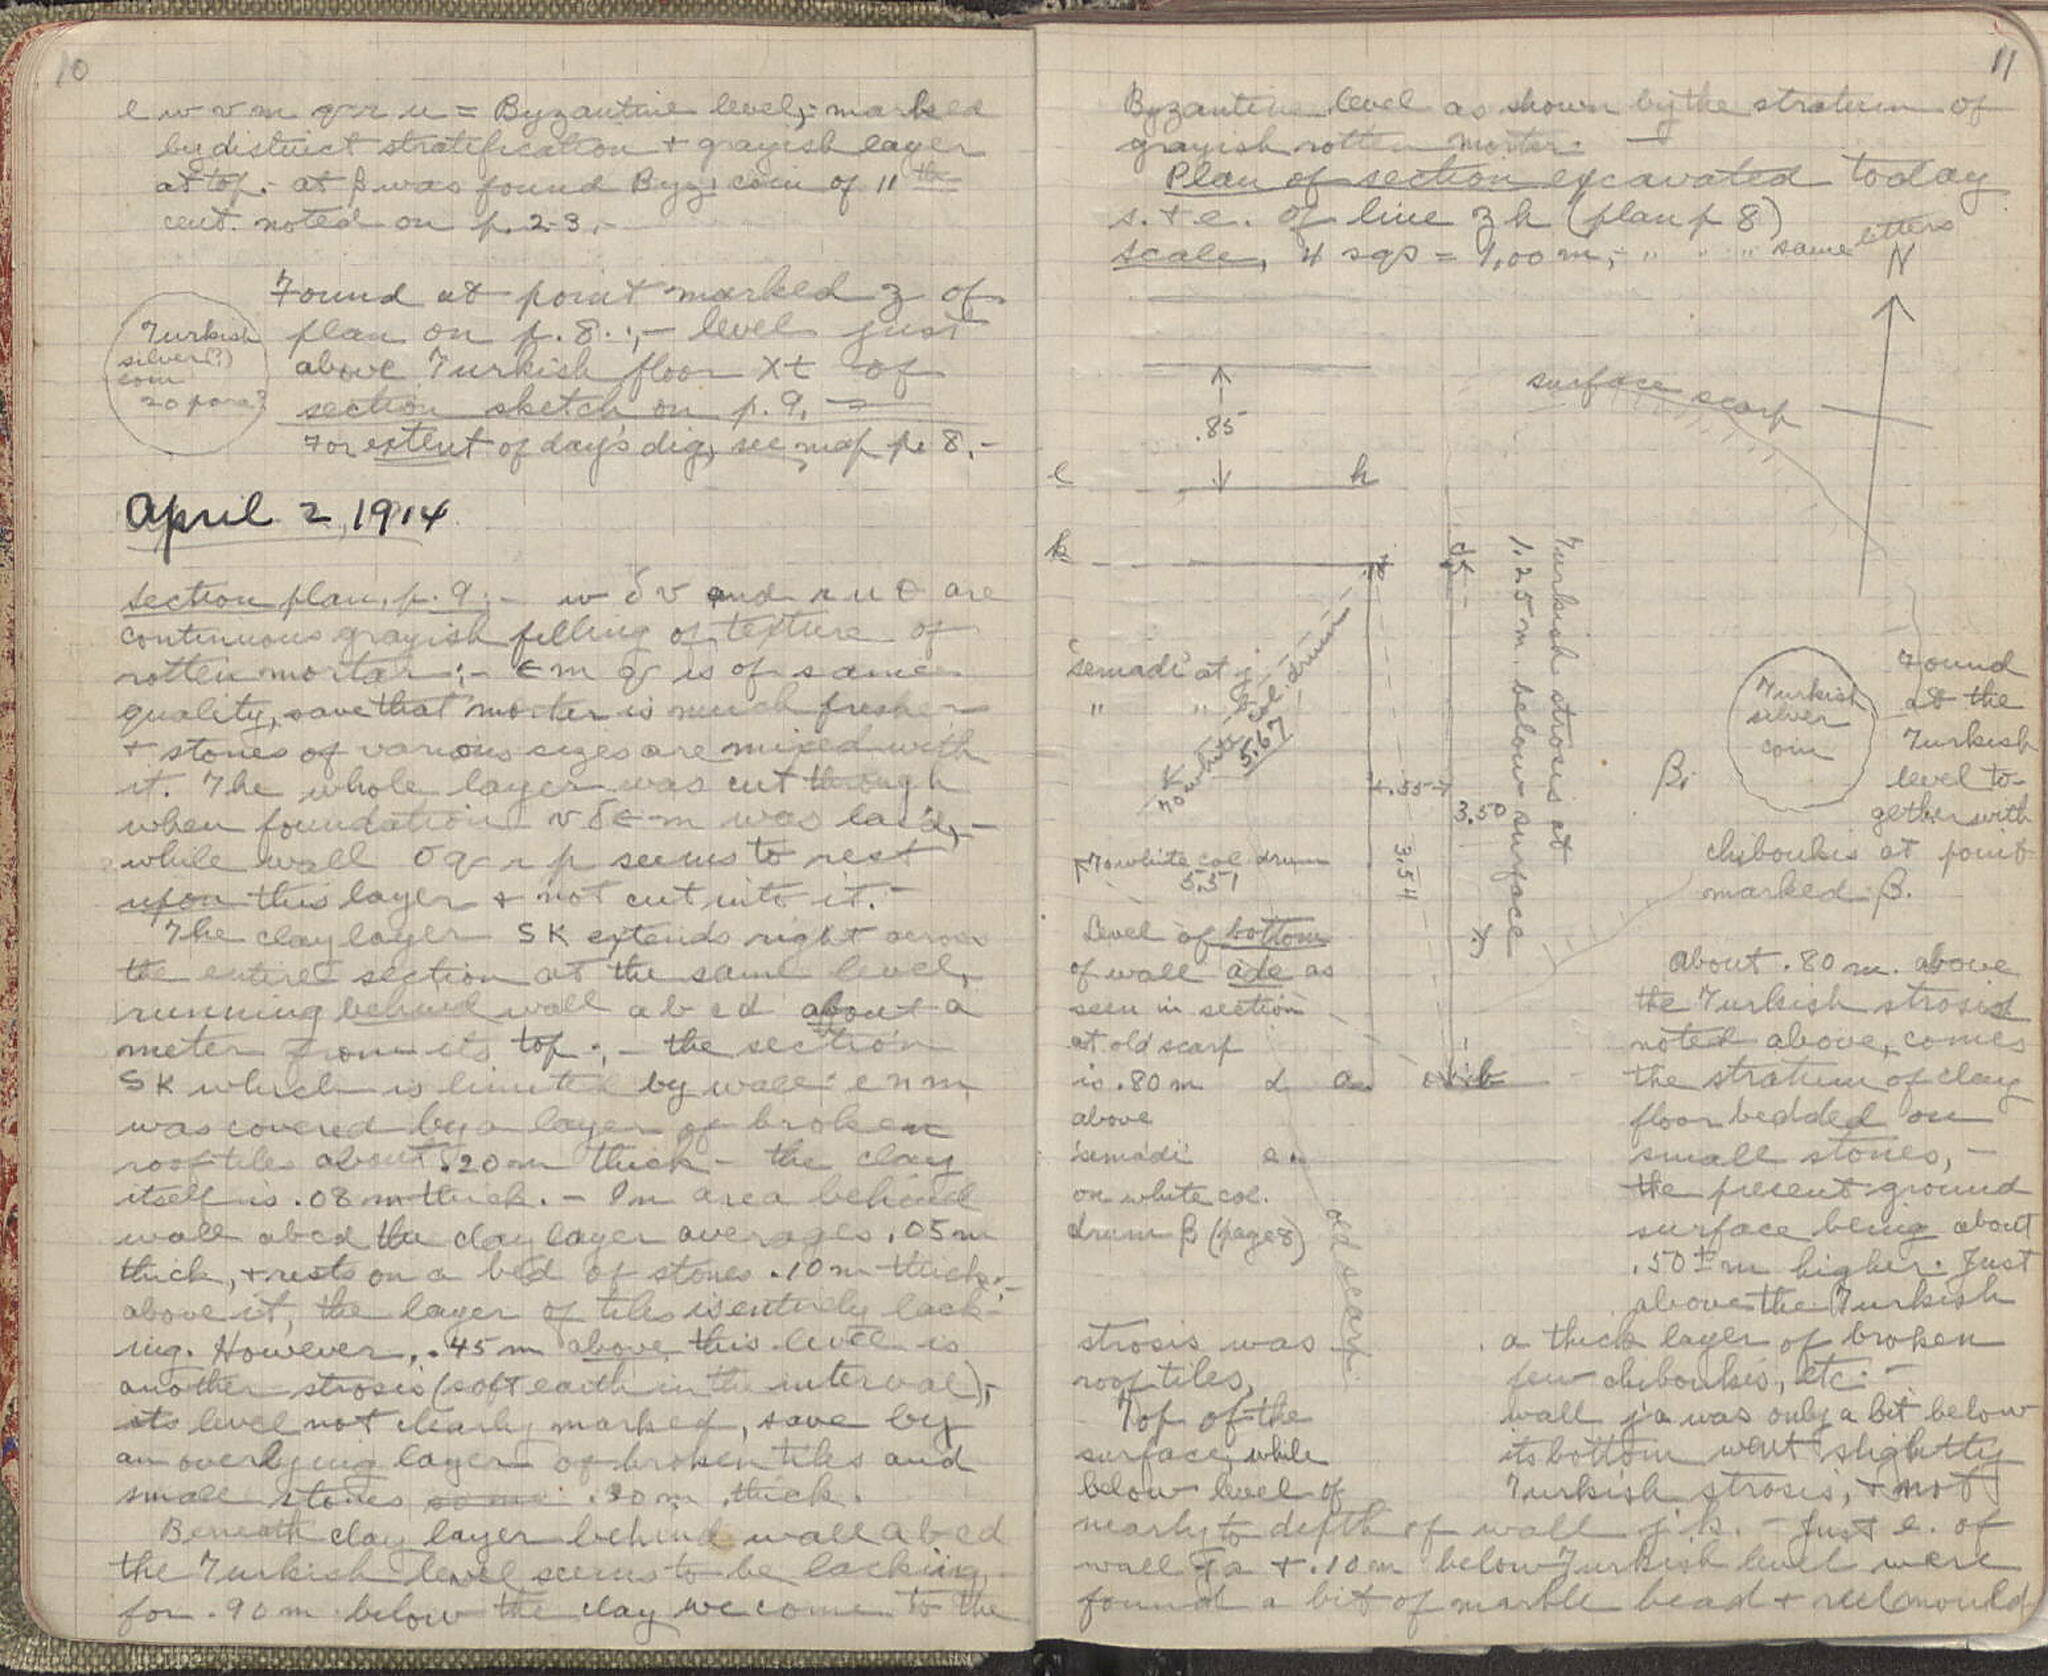 10
e w v m q r u = Byzantine level; - marked
by distinct stratification + grayish layer
at top. - at β was found Byz. coin of 11th
cent. noted on p. 2-3. -
Found at point marked z of
plan on p. 8. ; - level just
above Turkish floor xt of
section sketch on p. 9. -
For extent of day's dig, see map p. 8. -
Turkish
silver(?)
coin
20 para?
April 2, 1914
Section plan, p. 9 ; - w δ v and r u θ are
continuous grayish filling of texture of
rotten mortar ; - ε m q is of same
quality, save that mortar is much fresher
+ stones of various sizes are mixed with
it. The whole layer was cut through
when foundation v δ ε m was laid, -
while wall o q r p seems to rest
upon this layer + not cut into it. -
The clay layer SK extends right across
the entire section at the same level,
running behind wall a b c d about a
meter from its top ; - the section
SK which is limited by wall e n m
was covered by a layer of broken
roof tiles about .20 m thick - the clay
itself is .08 m thick. - In area behind
wall abcd the clay layer averages .05 m
thick, + rests on a bed of stones .10 m thick ; -
above it, the layer of tiles is entirely lack-
ing. However, .45 m above this level is
another strosis (soft earth in the interval), -
its level not clearly marked, save by
an overlying layer of broken tiles and
small stones some .30 m thick.
Beneath clay layer behind wall abcd
the Turkish level seems to be lacking,
for .90 m below the clay we come to the
11
Byzantine level as shown by the stratum of
grayish rotten mortar. -
Plan of section excavated today
s. + e. of line z h (plan p 8)
scale, 4 sqs = 1,00 m; - " " " same letters
N
surface scarp
.85
e h
k
d
'semadi' at j
" "
to white col. drum
5.67
4.55
3.50
3.54
Turkish strosis at
1.25 m. below surface
to white col drum
5.51
β.
Turkish
silver
coin
Found
at the
Turkish
level to-
gether with
chiboukis at point
marked β.
Level of bottom
of wall ade as
seen in section
at old scarp
is .80 m
above
'semadi'
on white col.
drum β (page 8)
d a b
e.
old scarp
About .80 m. above
the Turkish strosis
noted above, comes
the stratum of clay
floor bedded on
small stones, -
the present ground
surface being about
.50 ± m higher. Just
above the Turkish
strosis was a thick layer of broken
roof tiles, few chiboukis, etc. -
Top of the wall ja was only a bit below
surface, while its bottom went slightly
below level of Turkish strosis, + not
nearly to depth of wall jk. - Just e. of
wall ja + .10 m below Turkish level were
found a bit of marble bead + reel mould